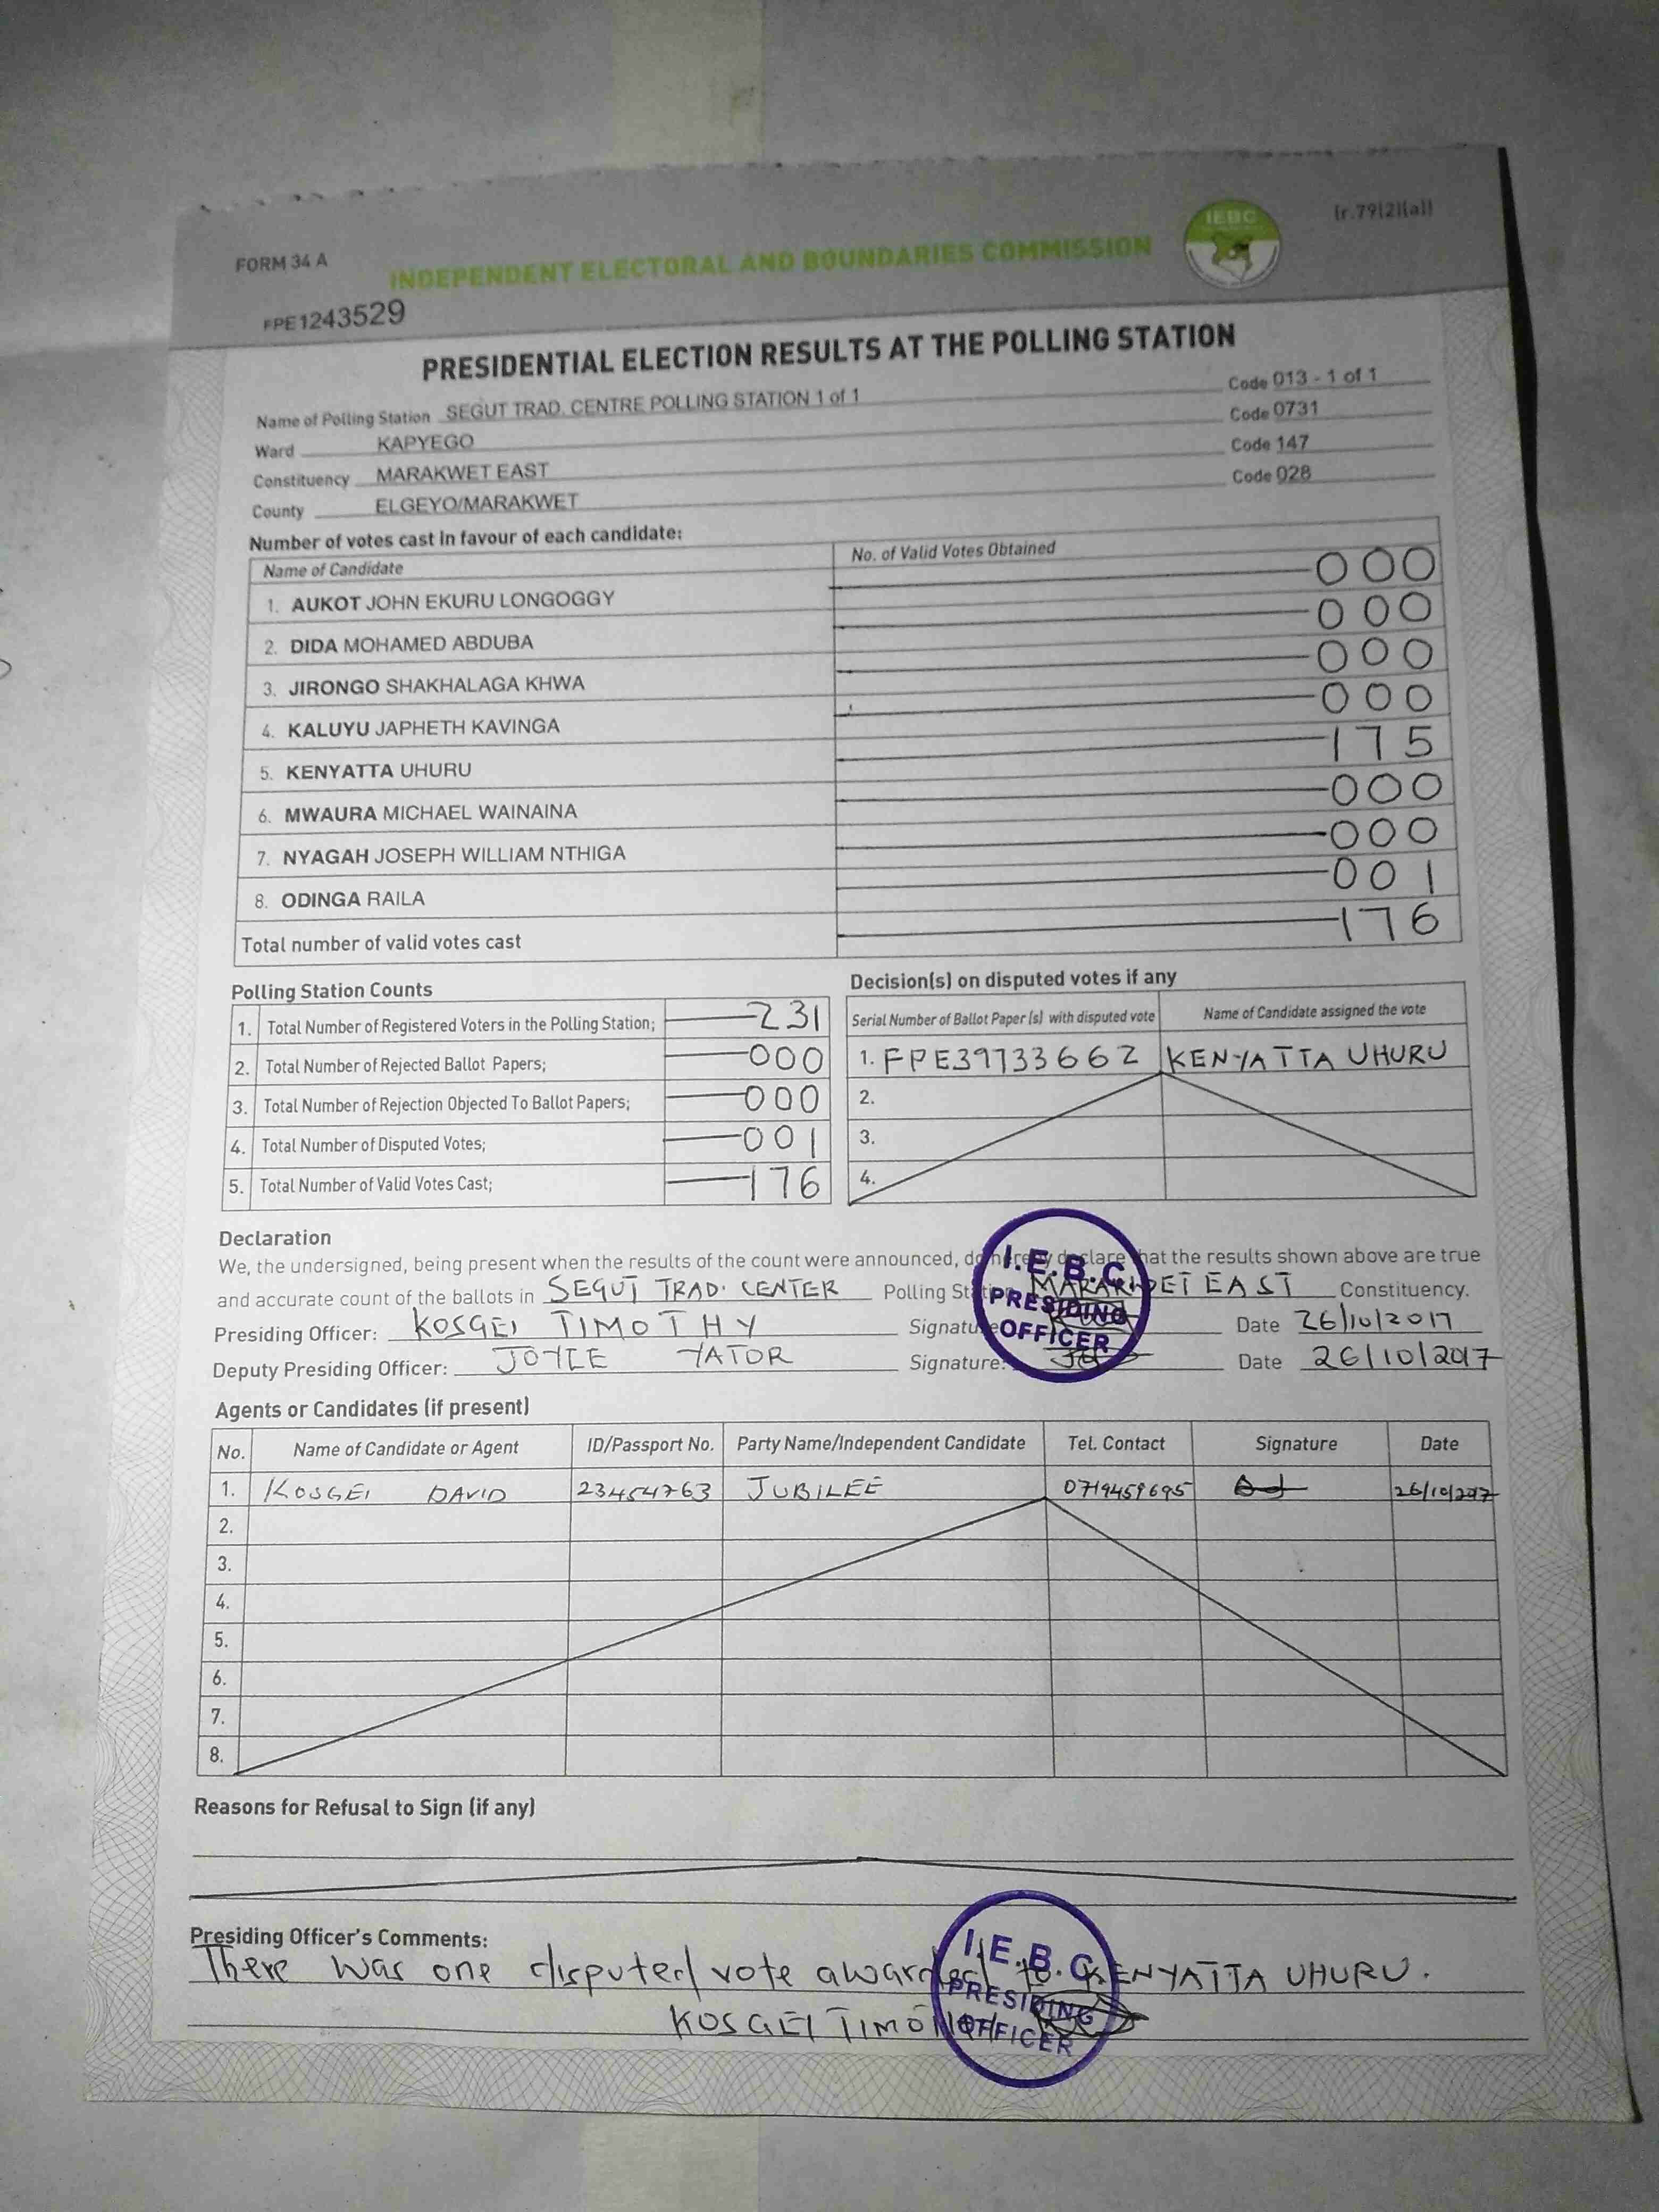 IEBC
(r.79(2)(a))
FORM 34 A
INDEPENDENT ELECTORAL AND BOUNDARIES COMMISSION
FPE1243529
PRESIDENTIAL ELECTION RESULTS AT THE POLLING STATION
Name of Polling Station SEGUT TRAD. CENTRE POLLING STATION 1 of 1 Code 013 - 1 of 1
Ward KAPYEGO Code 0731
Constituency MARAKWET EAST Code 147
County ELGEYO/MARAKWET Code 028
Number of votes cast in favour of each candidate:
Name of Candidate No. of Valid Votes Obtained
1. AUKOT JOHN EKURU LONGOGGY 000
2. DIDA MOHAMED ABDUBA 000
3. JIRONGO SHAKHALAGA KHWA 000
4. KALUYU JAPHETH KAVINGA 000
5. KENYATTA UHURU 175
6. MWAURA MICHAEL WAINAINA 000
7. NYAGAH JOSEPH WILLIAM NTHIGA 000
8. ODINGA RAILA 001
Total number of valid votes cast 176
Polling Station Counts
1. Total Number of Registered Voters in the Polling Station; 231
2. Total Number of Rejected Ballot Papers; 000
3. Total Number of Rejection Objected To Ballot Papers; 000
4. Total Number of Disputed Votes; 001
5. Total Number of Valid Votes Cast; 176
Decision(s) on disputed votes if any
Serial Number of Ballot Paper (s) with disputed vote Name of Candidate assigned the vote
1. FPE39733662 KENYATTA UHURU
2.
3.
4.
Declaration
We, the undersigned, being present when the results of the count were announced, do hereby declare that the results shown above are true
and accurate count of the ballots in SEGUT TRAD. CENTER Polling Station MARAKWET EAST Constituency.
Presiding Officer: KOSGEI TIMOTHY Signature: Date 26/10/2017
Deputy Presiding Officer: JOYCE YATOR Signature: Date 26/10/2017
I.E.B.C.
PRESIDING
OFFICER
Agents or Candidates (if present)
No. Name of Candidate or Agent ID/Passport No. Party Name/Independent Candidate Tel. Contact Signature Date
1. KOSGEI DAVID 23454763 JUBILEE 0719459695 26/10/2017
2.
3.
4.
5.
6.
7.
8.
Reasons for Refusal to Sign (if any)
Presiding Officer's Comments:
There was one disputed vote awarded to KENYATTA UHURU.
KOSGEI TIMOTHY
I.E.B.C.
PRESIDING
OFFICER